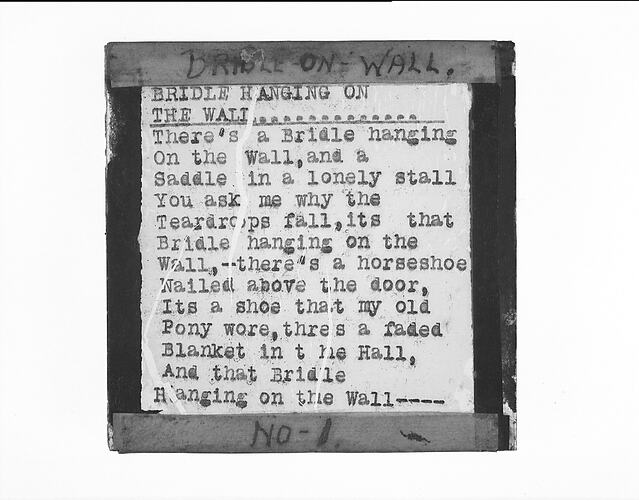 BRIDLE-ON-WALL.
BRIDLE HANGING ON
THE WALL..............
There's a Bridle hanging
On the Wall,and a
Saddle in a lonely stall
You ask me why the
Teardrops fall,its that
Bridle hanging on the
Wall,--there"s a horseshoe
Nailed above the door,
Its a shoe that my old
Pony wore,thres a faded
Blanket in t he Hall,
And that Bridle
Hanging on the Wall----
NO-1.